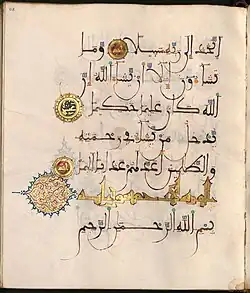 اتخذ إلى ربه سبيلا وما
تشاءون إلا أن يشاء الله إن
الله كان عليما حكيما
يدخل من يشاء في رحمته
والظالمين أعد لهم عذابا أليما
بسم الله الرحمن الرحيم